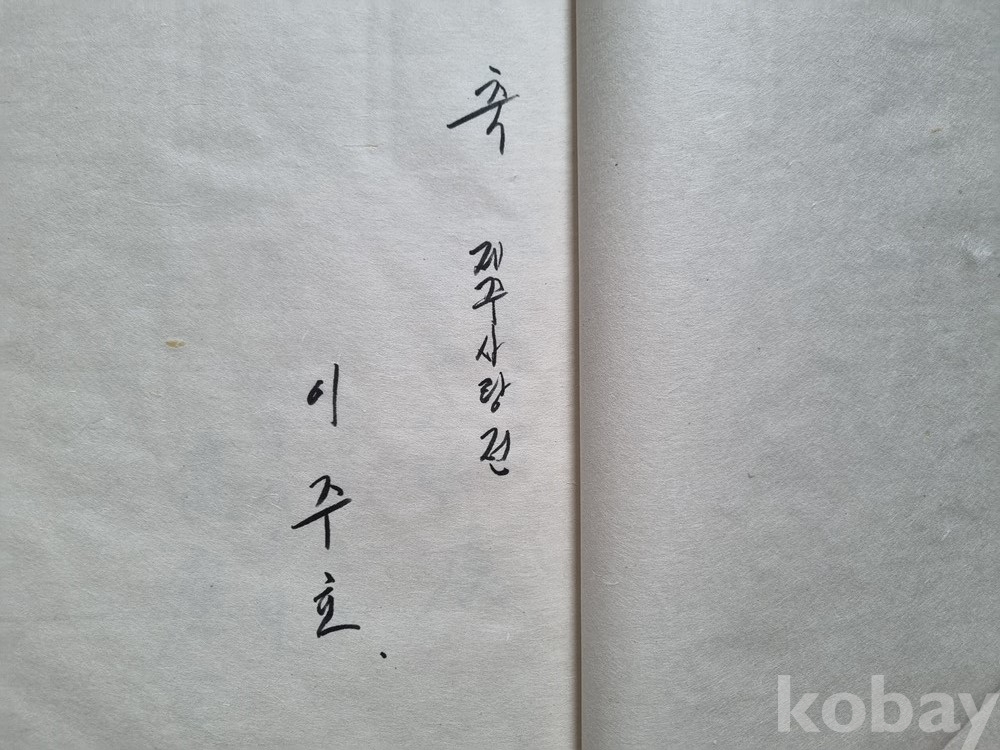 축
제주사랑전
이주호.
kobay